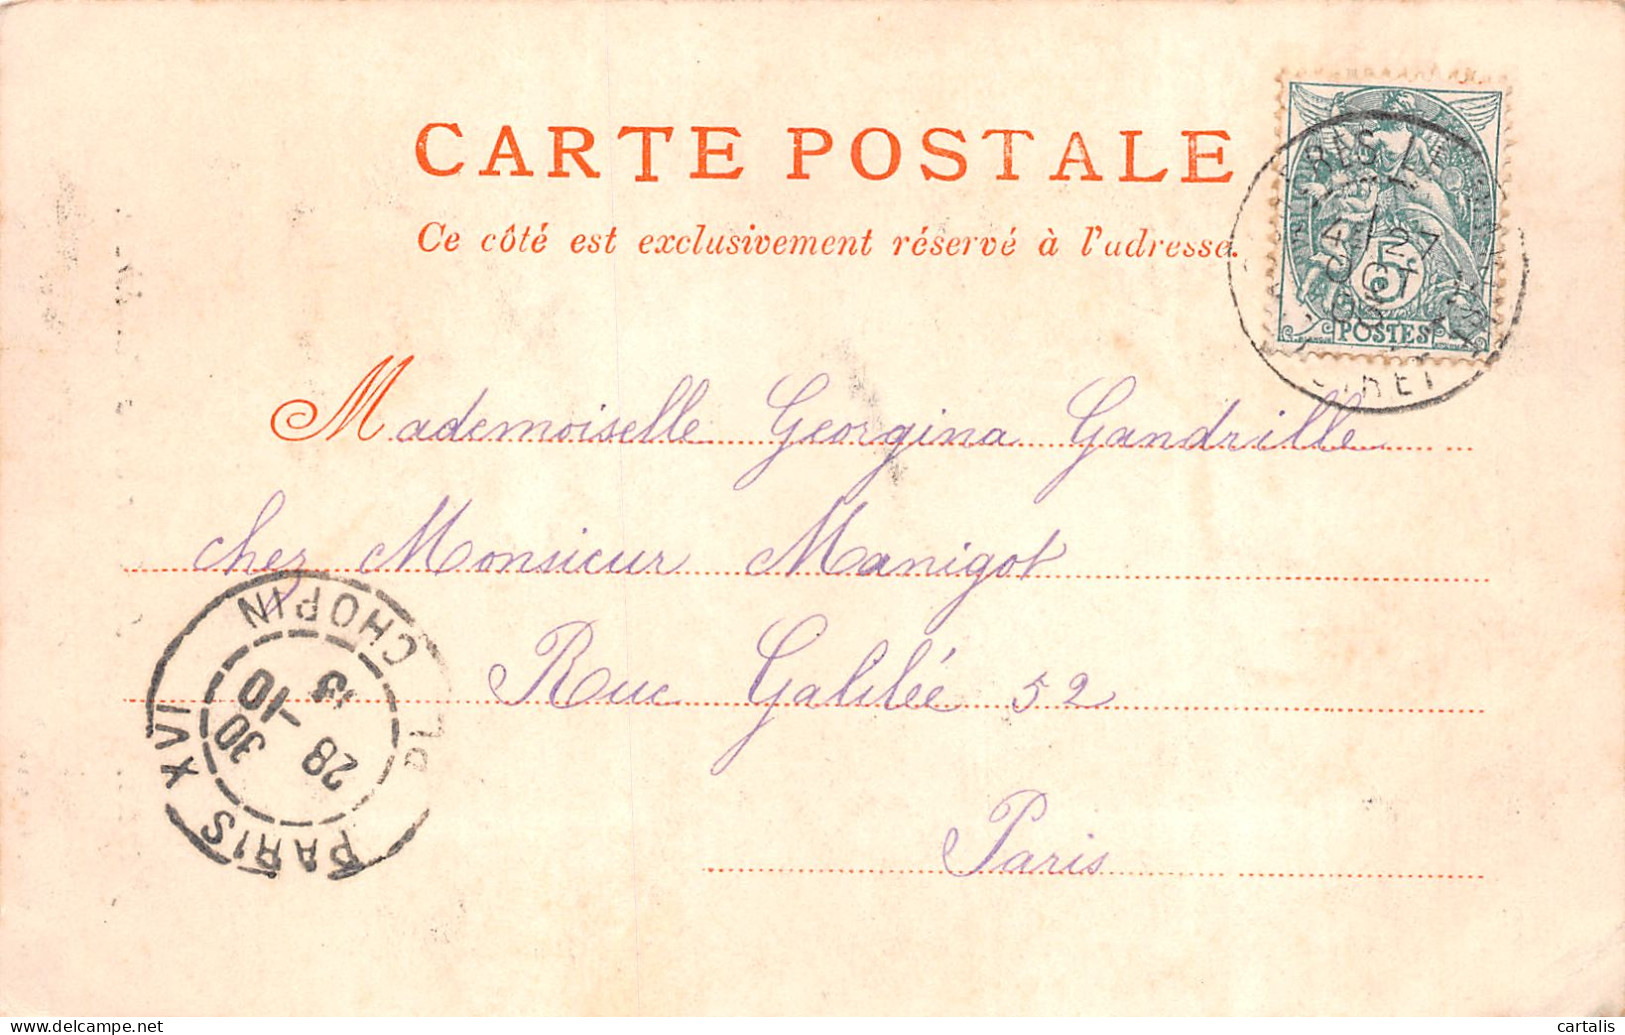 CARTE POSTALE
Ce côté est exclusivement réservé à l'adresse.
5
POSTES
27
OCT
LOIRET
Mademoiselle Georgina Gandrille
chez Monsieur Manigot
Rue Galilée 52
Paris
PARIS XVI
PL CHOPIN
10 30
28 -10
delcampe.net
cartalis